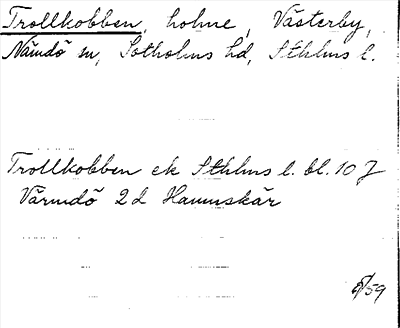 Trollkobben, holme, Västerby,
Nämdö sn, Sotholms hd, Sthlms l.
Trollkobben ek Sthlms l. bl. 10 J
Värmdö 2d Hamnskär
/59